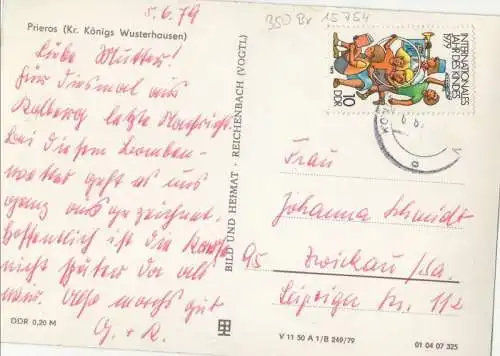 5.6.79
Prieros (Kr. Königs Wusterhausen)
Liebe Mutter!
Für diesmal aus
Kolberg letzte Nachricht
Bei diesem Bomben-
wetter geht es uns
ganz ausgezeichnet.
Hoffentlich ist die Karte
nicht später da als
wir. Also machs gut
G. + R.
DDR 0,20 M
BILD UND HEIMAT · REICHENBACH (VOGTL)
350 Br 15754
INTERNATIONALES
JAHR DES KINDES
1979
10
DDR
Frau
Johanna Schmidt
95 Zwickau/Sa.
Leipziger Str. 112
V 11 50 A 1/B 249/79
01 04 07 325